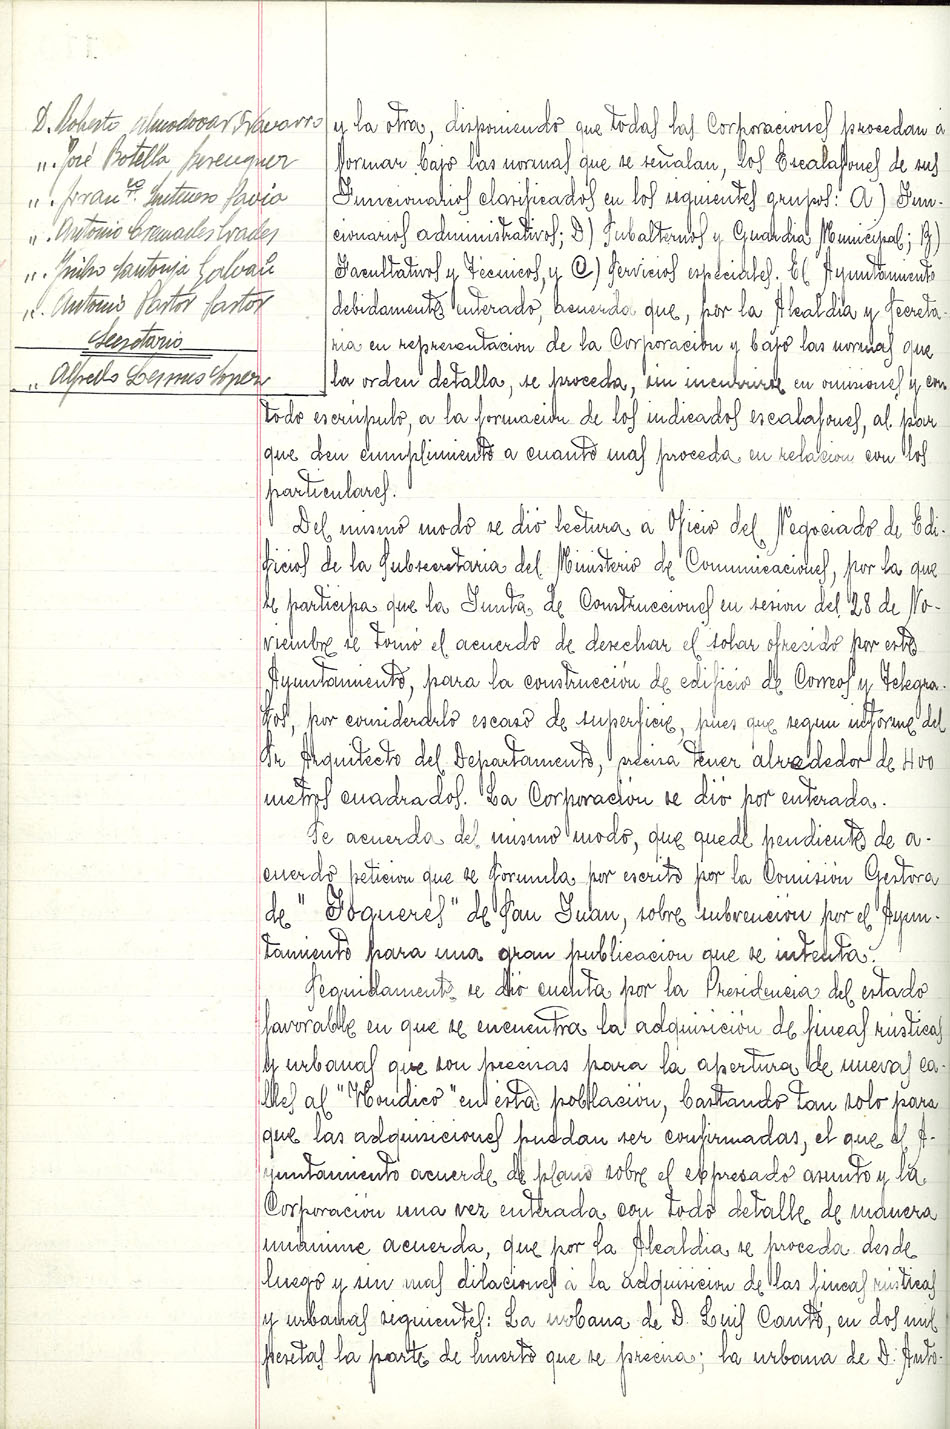 D. Roberto Almodovar Navarro
„ . José Botella Berenguer
„ . Fran.co
„ . Antonio Cremades Crades
„ . Emilio Santonja Galvañ
„ . Antonio Pastor Pastor
Secretario
„ Alfredo Lopez
y la otra, disponiendo que todas las Corporaciones procedan a
formar bajo las normas que se señalan, los Escalafones de sus
Funcionarios clasificados en los siguientes grupos: A) Fun-
cionarios administrativos; D) Subalternos y Guardia Municipal; B)
Facultativos y Técnicos, y C) Servicios especiales. El Ayuntamiento
debidamente enterado, acuerda que, por la Alcaldia y Secreta-
ria en representacion de la Corporacion y bajo las normas que
la orden detalla, se proceda, sin incurrirse en omisiones y con
todo escrúpulo, a la formacion de los indicados escalafones, al par
que den cumplimiento a cuanto mas proceda en relacion con los
particulares.
Del mismo modo se dió lectura a Oficio del Negociado de Edi-
ficios de la Subsecretaria del Ministerio de Comunicaciones, por la que
se participa que la Junta de Construcciones en sesion del 28 de No-
viembre se tomó el acuerdo de desechar el solar ofrecido por este
Ayuntamiento, para la construcción de edificio de Correos y Telegra-
fos, por considerarlo escaso de superficie, pues que segun informe del
Sr Arquitecto del Departamento, precisa tener alrededor de 400
metros cuadrados. La Corporación se dió por enterada.
Se acuerda del mismo modo, que quede pendiente de a-
cuerdo peticion que se formula por escrito por la Comisión Gestora
de "Fogueres" de San Juan, sobre subvención por el Ayun-
tamiento para una gran publicacion que se intenta.
Seguidamente se dió cuenta por la Presidencia del estado
favorable en que se encuentra la adquisición de fincas rústicas
y urbanas que son precisas para la apertura de nuevas ca-
lles al "Hondico" en esta población, bastando tan solo para
que las adquisiciones puedan ser confirmadas, el que el A-
yuntamiento acuerde de plano sobre el expresado asunto y la
Corporación una vez enterada con todo detalle de manera
unánime acuerda, que por la Alcaldia se proceda desde
luego y sin mas dilaciones a la adquisicion de las fincas rústicas
y urbanas siguientes: La urbana de D. Luis Cantó, en dos mil
pesetas la parte de huerto que se precisa; la urbana de D. Anto-